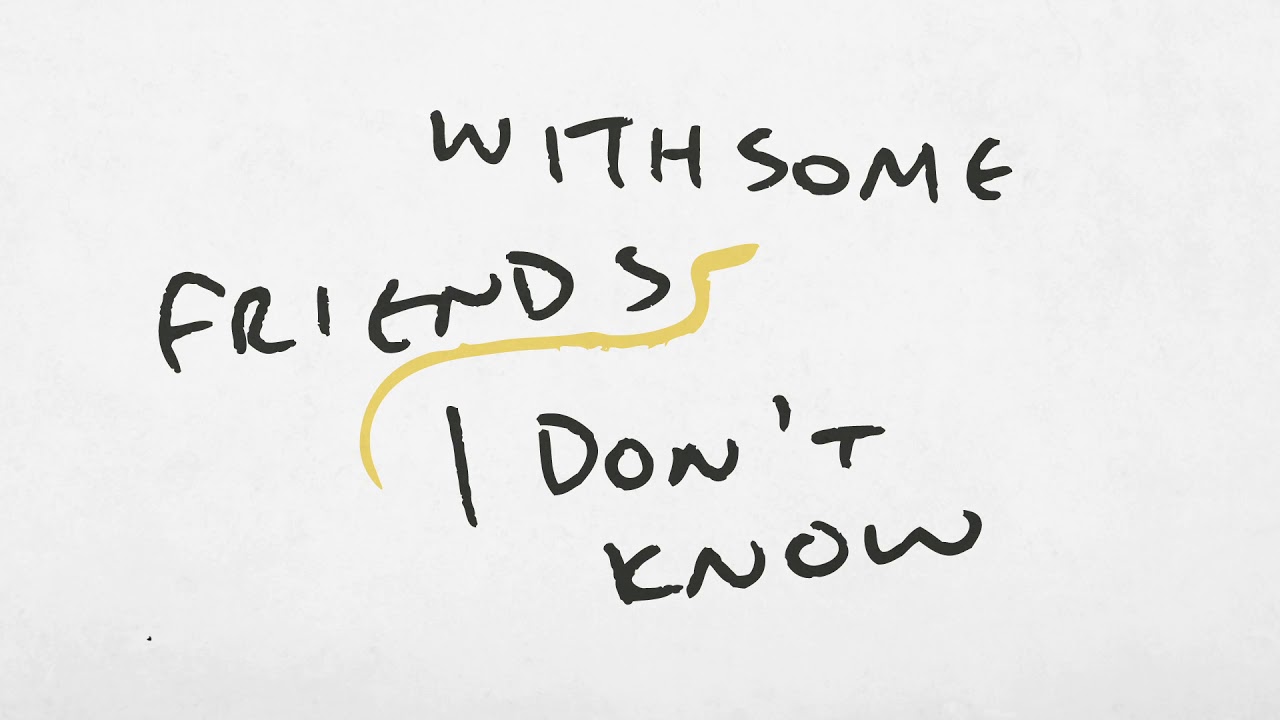 WITH SOME
FRIENDS
I DON'T
KNOW